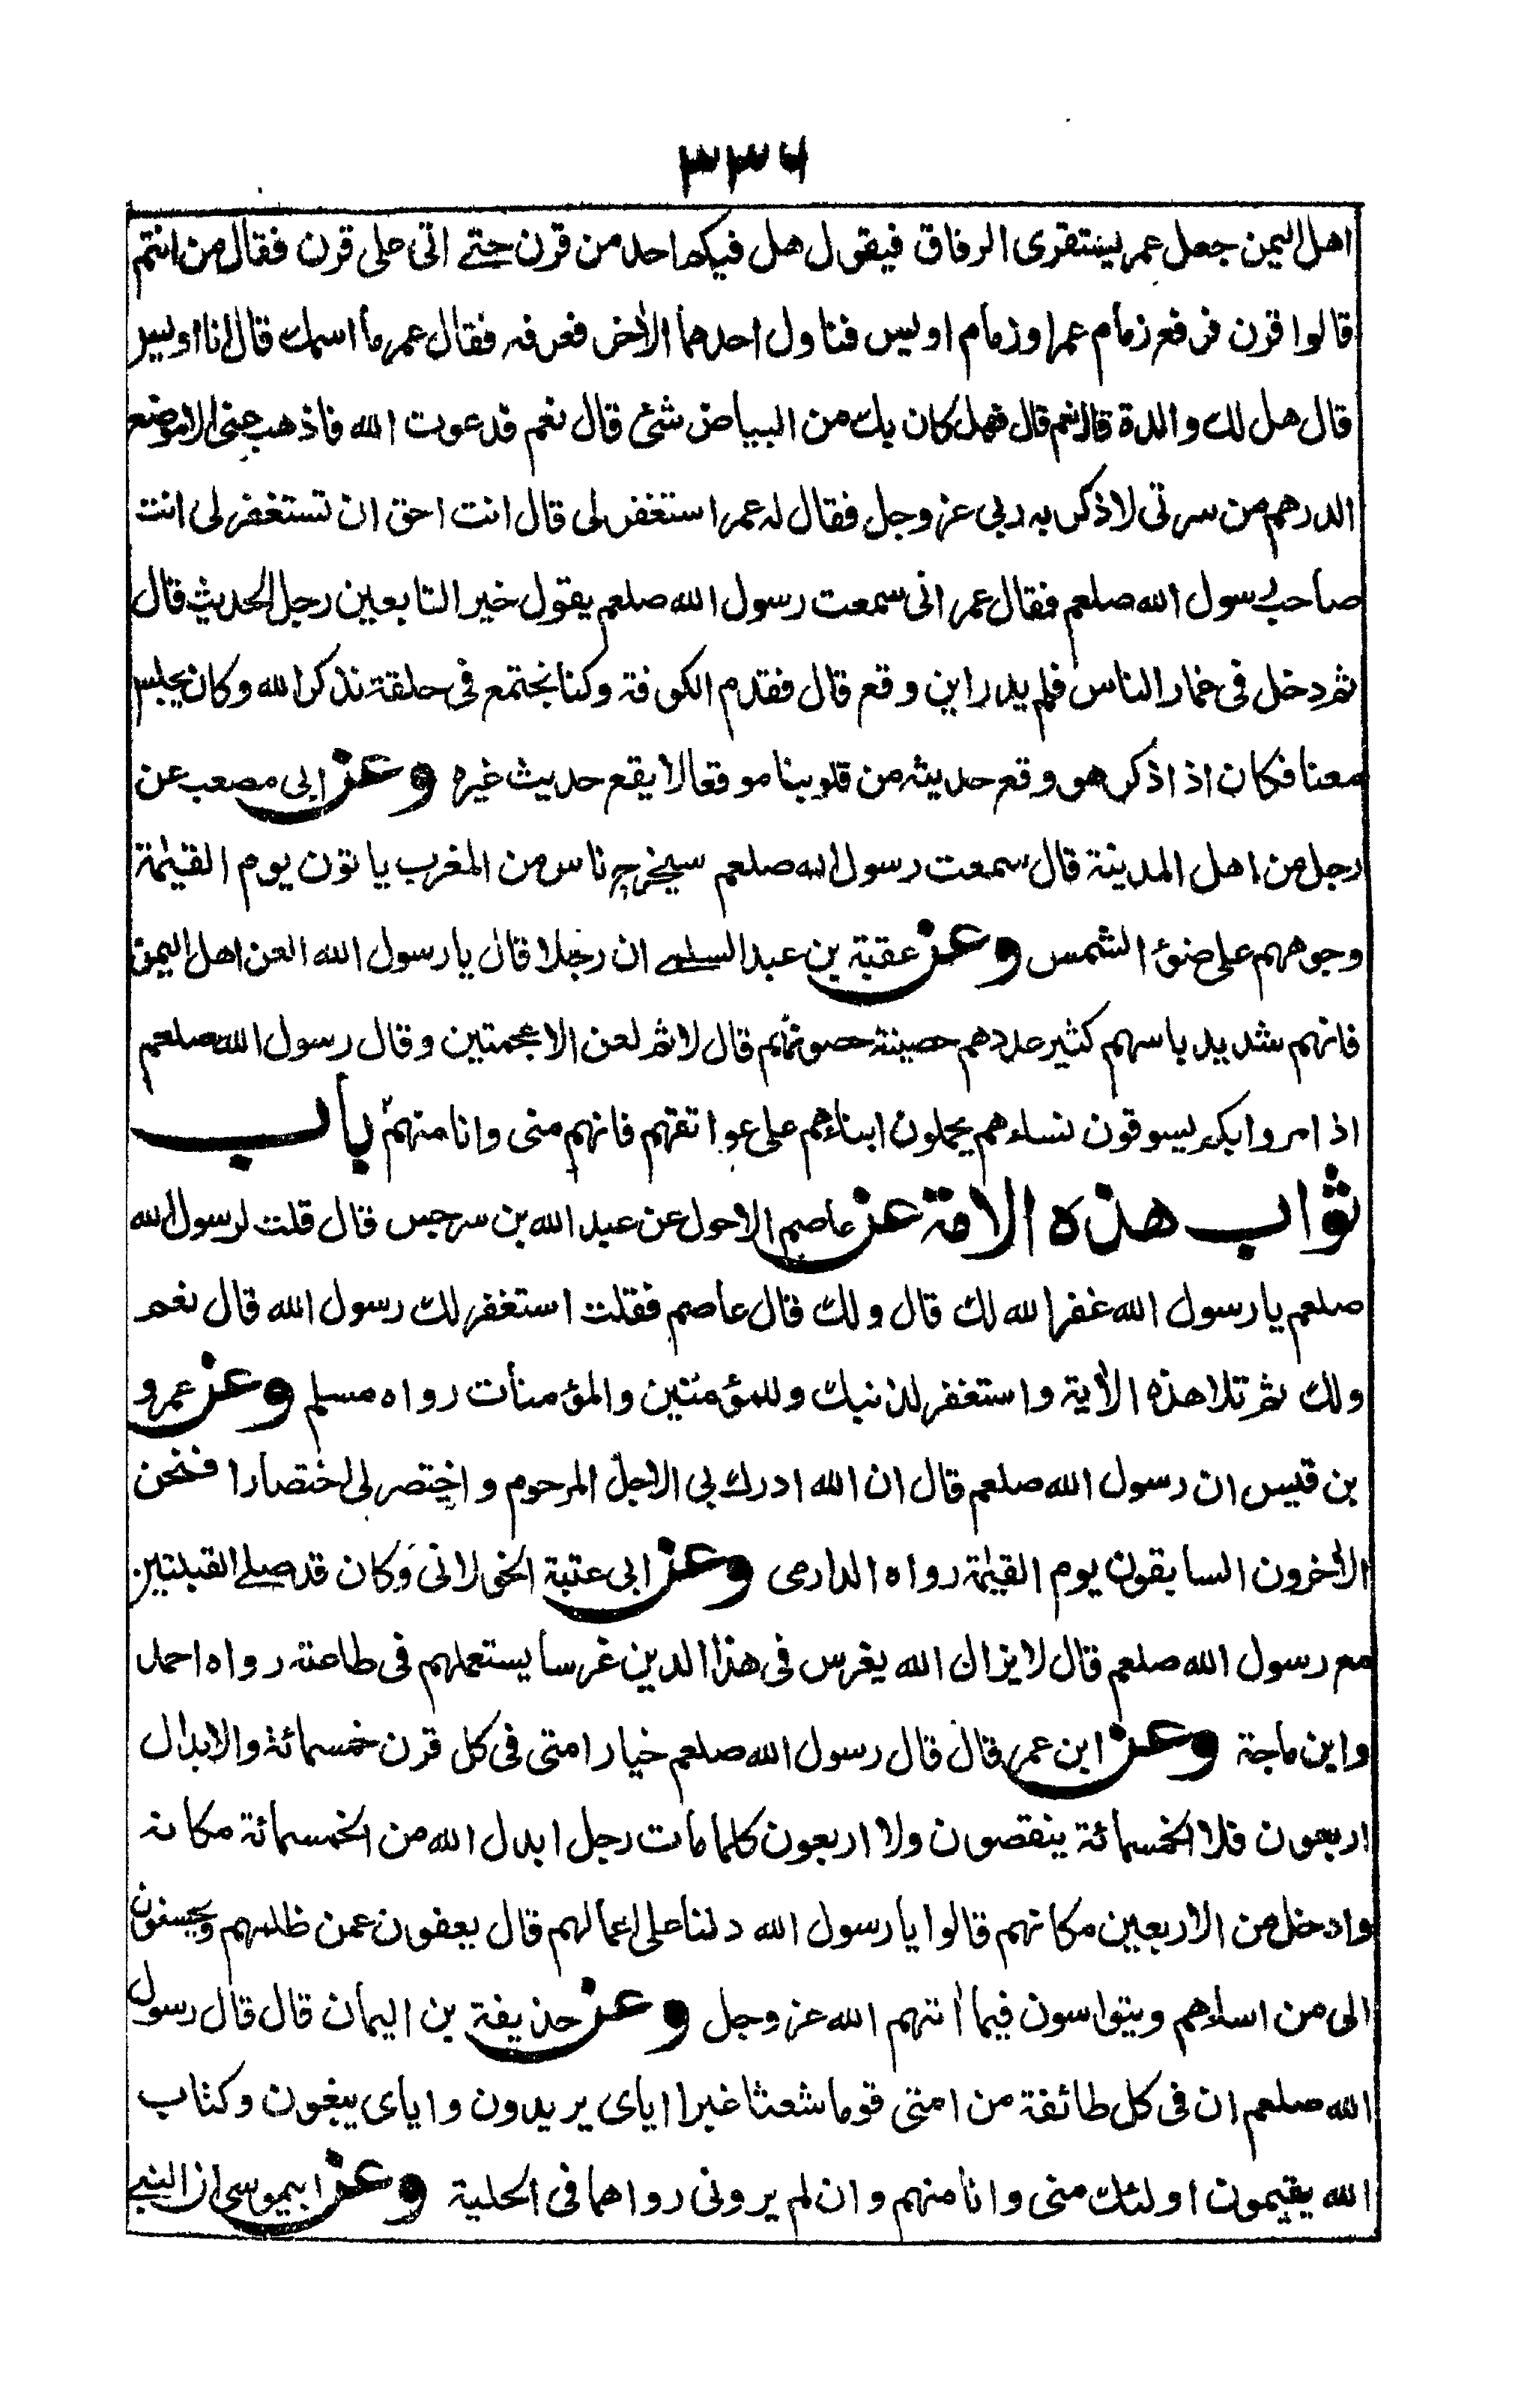 ٣٣٦
اهل اليمن جعل عمر يستقرى الرفاق فيقول هل فيكم احد من قرن حتے اتى على قرن فقال من انتم
قالوا قرن فرفع زمام عمر اوزمام اويس فناول احدهما الاٰخر فعرفه فقال عمر ما اسمك قال انا اويس
قال هل لك والدة قال نعم قال فهل كان بك من البياض شئ قال نعم فدعوت الله فاذهب عنى الا موضع
الدرهم من سرتى لاذكر به ربى عز وجل فقال له عمر استغفر لى قال انت احق ان تستغفر لى انت
صاحب رسول الله صلعم فقال عمر انى سمعت رسول الله صلعم يقول خير التابعين رجل الحديث قال
ثم دخل فى غمار الناس فلم يدر اين وقع قال فقدم الكوفة وكنا نجتمع فى حلقة نذكر الله وكان يجلس
معنا فكان اذا ذكر هو وقع حديثه من قلوبنا موقعا لا يقع حديث غيره وعن ابى مصعب عن
رجل من اهل المدينة قال سمعت رسول الله صلعم سيخرج ناس من المغرب ياتون يوم القيٰمة
وجوههم على ضوء الشمس وعن عقبة بن عبد السلمے ان رجلا قال يا رسول الله العن اهل اليمن
فانهم شديد باسهم كثير عددهم حصينة حصونهم قال لا ثم لعن الاعجمتين وقال رسول الله صلعم
اذا مروا بكم يسوقون نساءهم يحملون ابناءهم على عواتقهم فانهم منى وانا منهم باب
ثواب هذه الامة عن عاصم الاحول عن عبد الله بن سرجس قال قلت لرسول الله
صلعم يا رسول الله غفر الله لك قال ولك قال عاصم فقلت استغفر لك رسول الله قال نعم
ولك ثم تلا هذه الاٰية واستغفر لذنبك وللمؤمنين والمؤمنات رواه مسلم وعن عمرو
بن قيس ان رسول الله صلعم قال ان الله ادرك بى الاجل المرحوم واختصر لى اختصارا فنحن
الاٰخرون السابقون يوم القيٰمة رواه الدارمى وعن ابى عتبة الخولانى وكان قد صلے القبلتين
مع رسول الله صلعم قال لا يزال الله يغرس فى هذا الدين غرسا يستعملهم فى طاعته رواه احمد
وابن ماجة وعن ابن عمر قال قال رسول الله صلعم خيار امتى فى كل قرن خمسمائة والابدال
اربعون فلا الخمسمائة ينقصون ولا اربعون كلما مات رجل ابدل الله من الخمسمائة مكانه
وادخل من الاربعين مكانهم قالوا يا رسول الله دلنا على اعمالهم قال يعفون عمن ظلمهم ويحسنون
الى من اساءهم ويتواسون فيما اٰتهم الله عز وجل وعن حذيفة بن اليمان قال قال رسول
الله صلعم ان فى كل طائفة من امتى قوما شعثا غبرا اياى يريدون واياى يبغون وكتاب
الله يقيمون اولئك منى وانا منهم وان لم يرونى رواهما فى الحلية وعن ابيموسى ان النبى